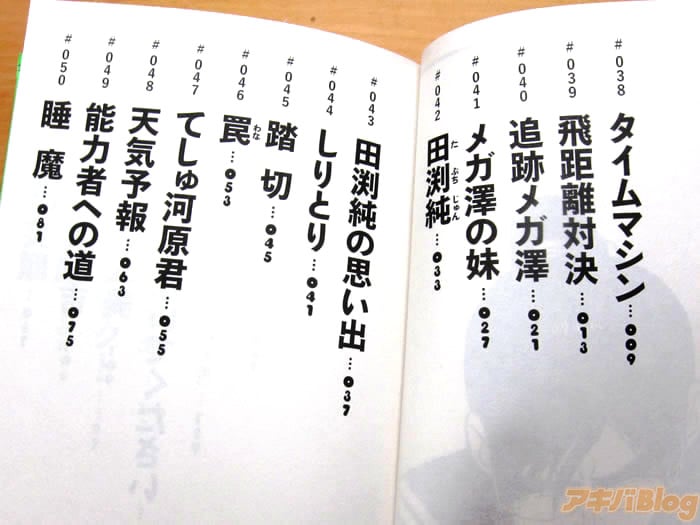 #038 タイムマシン…009
#039 飛距離対決…013
#040 追跡メガ澤…021
#041 メガ澤の妹…027
#042 田渕純…033
た ぶち じゅん
#043 田渕純の思い出…037
#044 しりとり…041
#045 踏切…045
#046 罠…053
わな
#047 てしゅ河原君…055
#048 天気予報…063
#049 能力者への道…075
#050 睡魔…081
アキバBlog